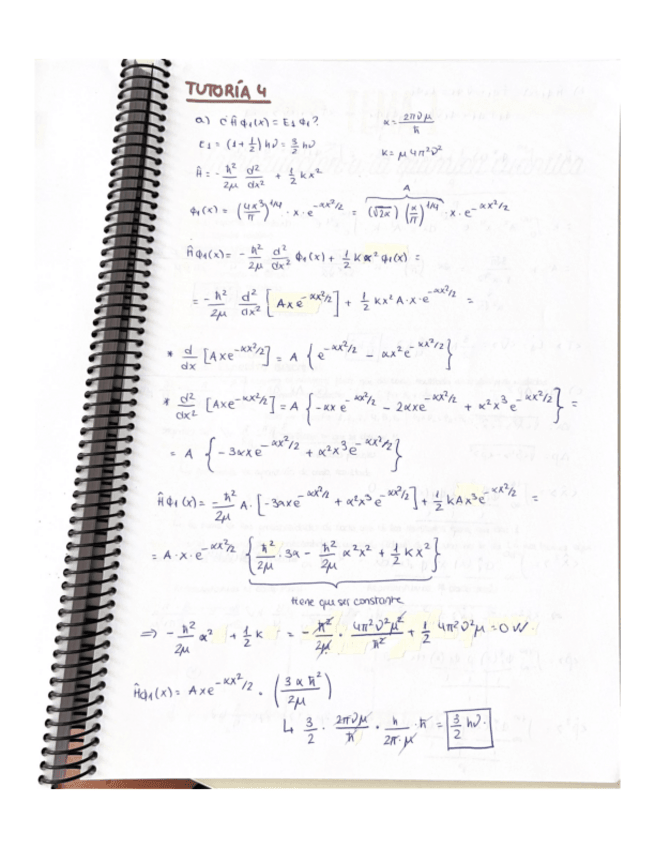 TUTORÍA 4
a) ¿ Ĥ φ₁(x) = E₁ φ₁? α = 2πνμ/ħ
E₁ = (1 + 1/2) hν = 3/2 hν K = μ 4π²ν²
Ĥ = - ħ²/2μ d²/dx² + 1/2 kx²
A
φ₁(x) = (4α³/π)^1/4 · x · e^-αx²/2 = (√2α) (α/π)^1/4 · x · e^-αx²/2
Ĥφ₁(x) = - ħ²/2μ d²/dx² φ₁(x) + 1/2 K x² φ₁(x) =
= - ħ²/2μ d²/dx² [Axe^-αx²/2] + 1/2 kx² A·x·e^-αx²/2 =
* d/dx [Axe^-αx²/2] = A {e^-αx²/2 - αx²e^-αx²/2}
* d²/dx² [Axe^-αx²/2] = A {-αxe^-αx²/2 - 2αxe^-αx²/2 + α²x³e^-αx²/2} =
= A {-3αxe^-αx²/2 + α²x³e^-αx²/2}
Ĥφ₁(x) = - ħ²/2μ A · [-3αxe^-αx²/2 + α²x³e^-αx²/2] + 1/2 kAx³e^-αx²/2 =
= A·x·e^-αx²/2 {ħ²/2μ · 3α - ħ²/2μ α²x² + 1/2 kx²}
tiene que ser constante
⇒ - ħ²/2μ α² + 1/2 k = - ħ²/2μ · 4π²ν²μ²/ħ² + 1/2 4π²ν²μ = 0 ✓.
Ĥφ₁(x) = Axe^-αx²/2 · (3αħ²/2μ)
↳ 3/2 · 2πνμ/ħ · h/2π·μ · ħ = 3/2 hν.